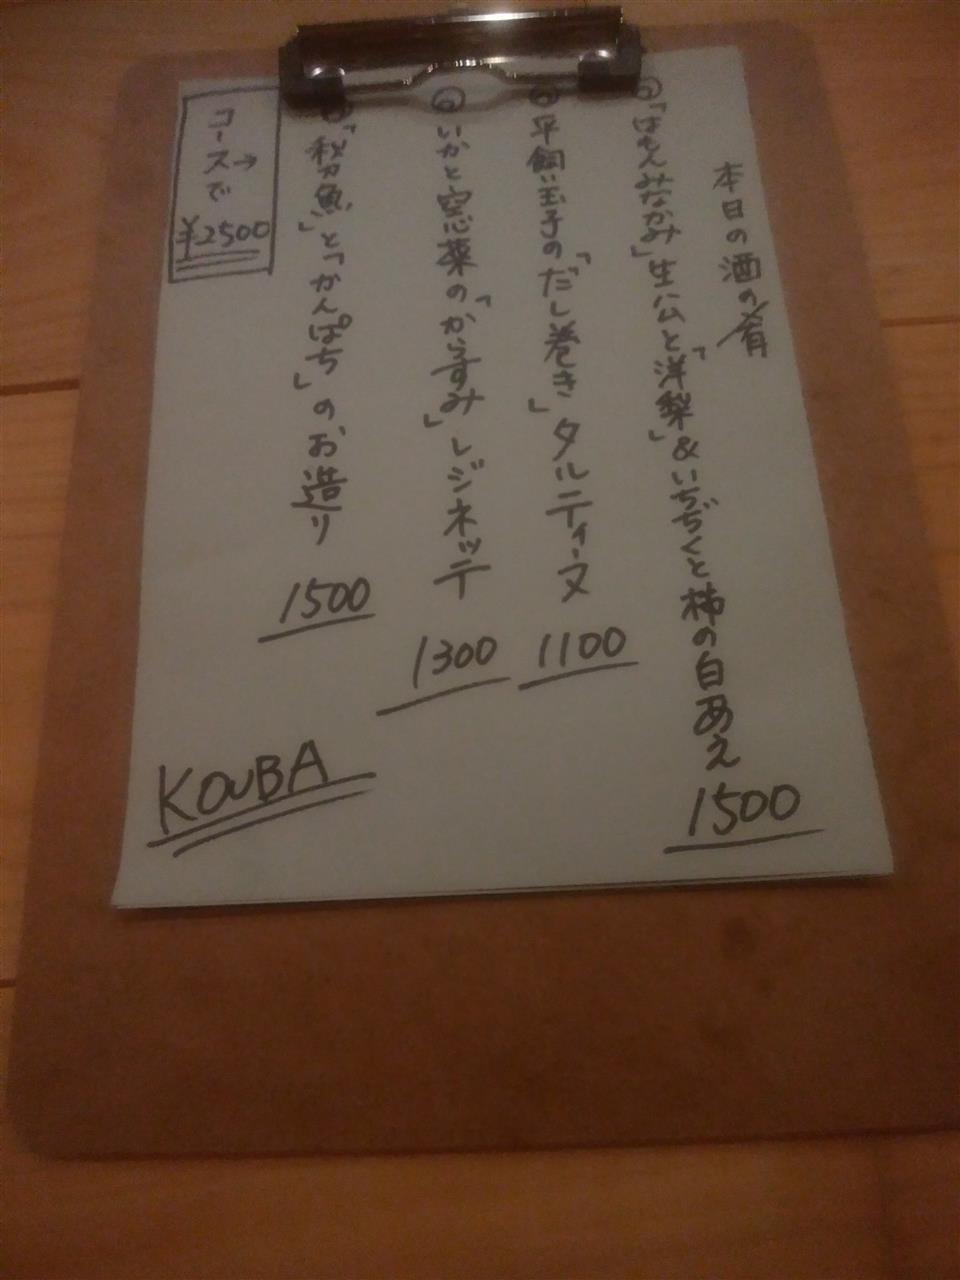 本日の酒の肴
◎「はもんみなかみ」生ハムと「洋梨」&いちぢくと柿の白あえ
1500
◎平飼い玉子の「だし巻き」タルティーヌ
1100
◎いかと空心菜の「からすみ」レジネッテ
1300
「秋刀魚」と「かんぱち」のお造り
1500
コースで
→
¥2500
KOUBA